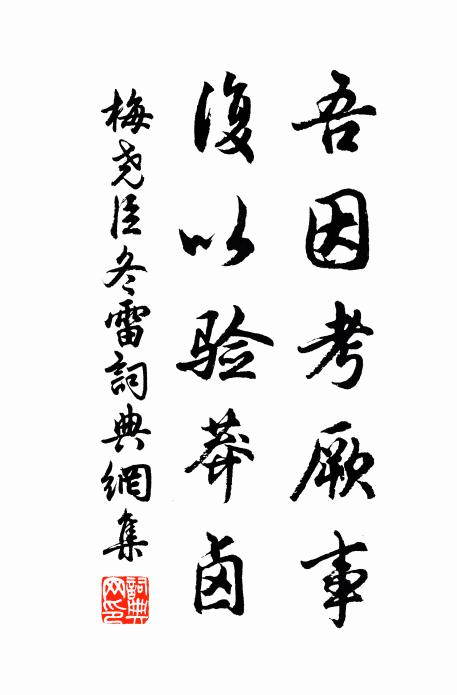 吾因考厥事
復以验莽卤
梅尧臣冬雷詞典網集
詞典網印